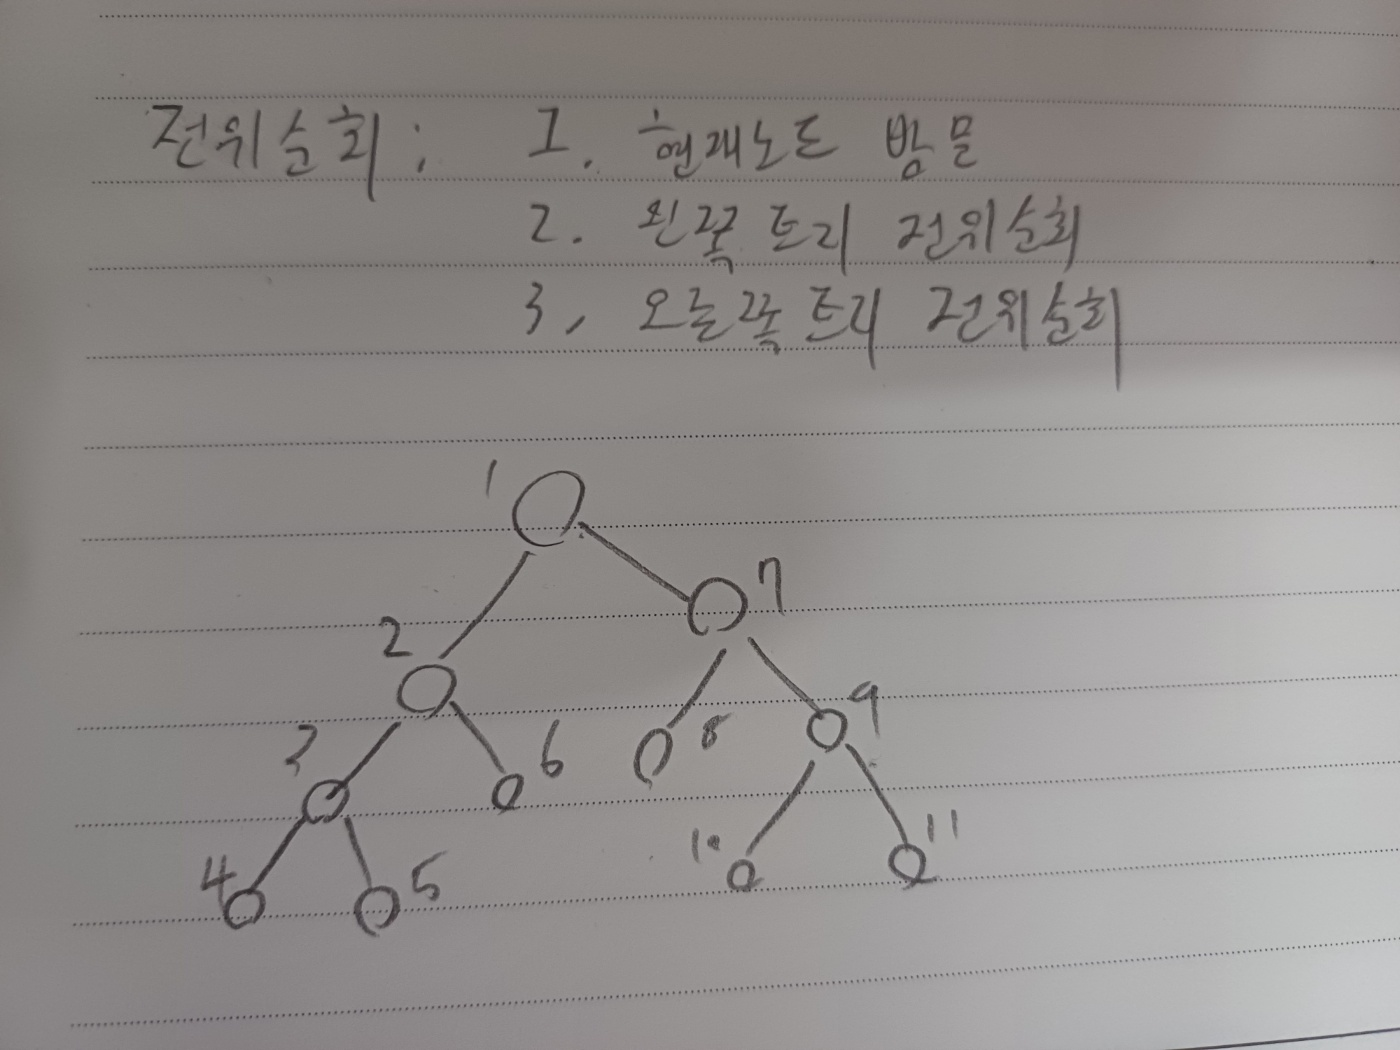 전위순회: 1. 현재노드 방문
2. 왼쪽 트리 전위순회
3, 오른쪽 트리 전위순회
1
7
2
9
3
6
8
10
11
4
5